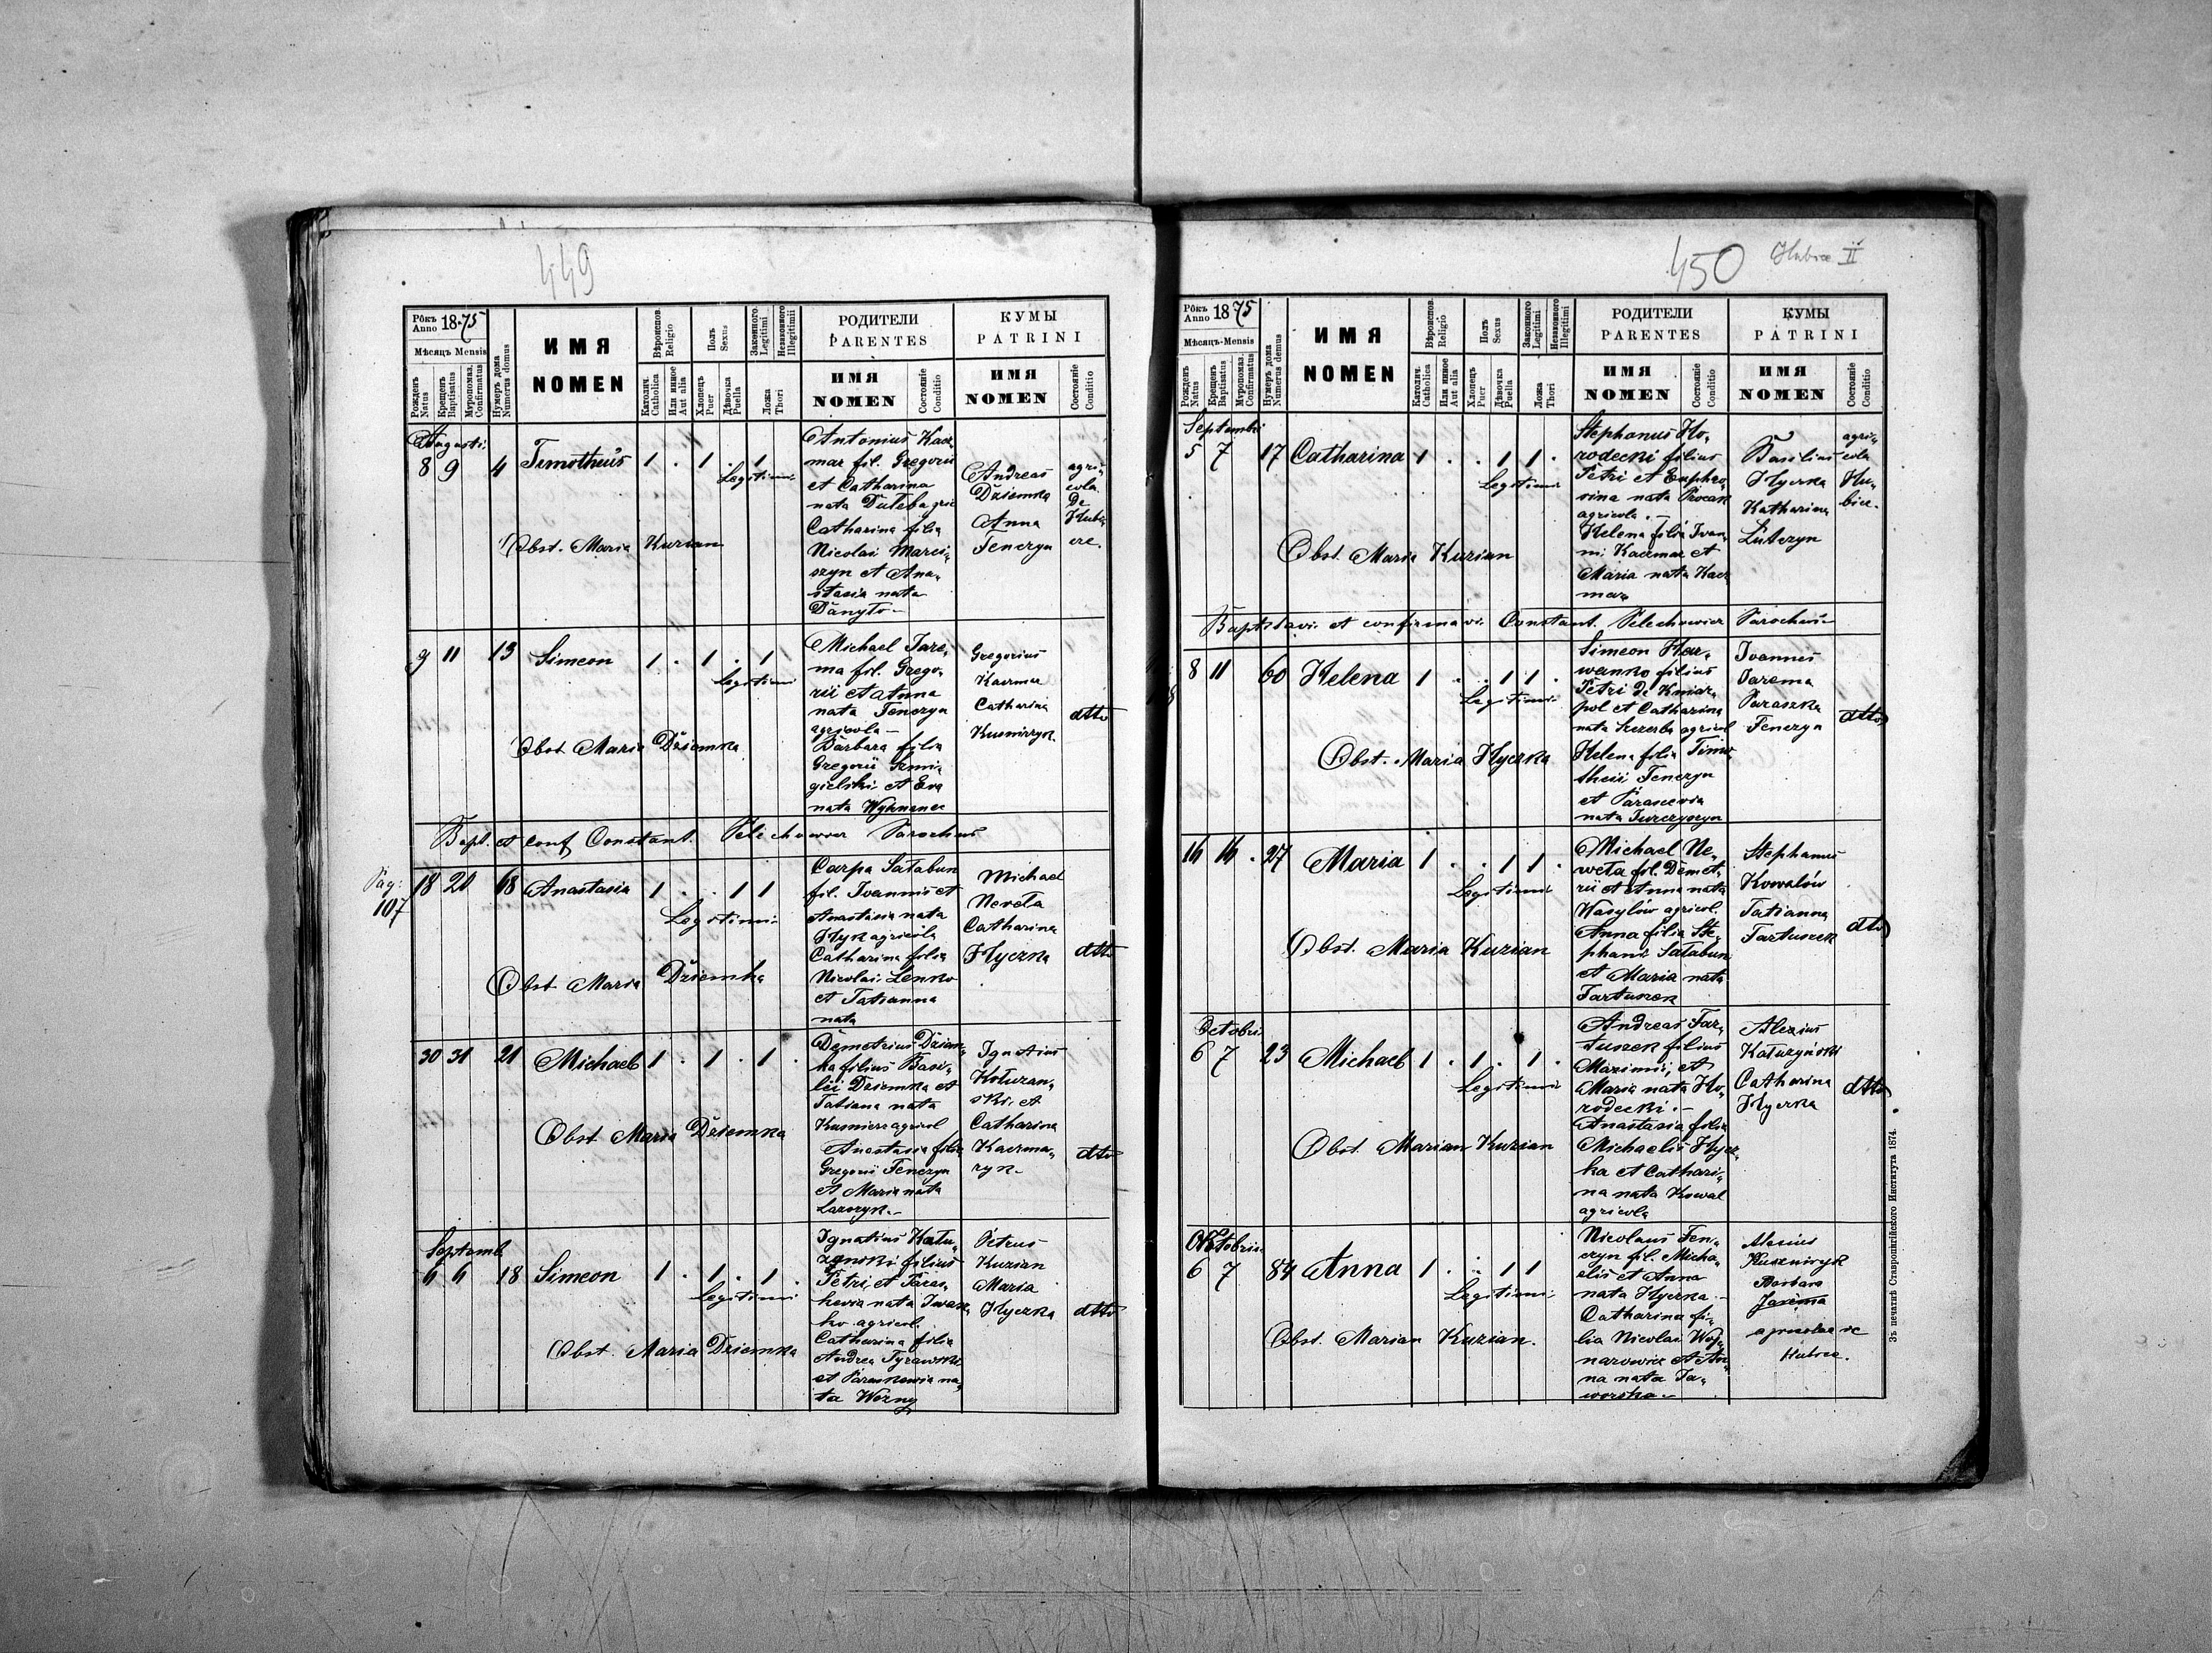 449
Рôкъ Anno 1875
Мѣсяцъ Mensis
Рожденъ Natus
Крещенъ Baptisatus
Муропомаз. Confirmatus
Нумеръ дома Numerus domus
ИМЯ
NOMEN
Вѣроиспов. Religio
Католич. Catholica
Или инное Aut alia
Полъ Sexus
Хлопецъ Puer
Дѣвочка Puella
Законного Legitimi
Незаконного Illegitimi
Ложа Thori
РОДИТЕЛИ
PARENTES
ИМЯ
NOMEN
Состоянiе Conditio
КУМЫ
PATRINI
ИМЯ
NOMEN
Состоянiе Conditio
Augusti
8 9 4 Timotheus 1 . 1 . 1
Legitimi
Obst. Maria Kurian
Antonius Kacz
mar fil. Gregorii
et Catharina
nata Duleba gric
Catharina filia
Nicolai Marci-
szyn et Ana-
stasia nata
Danyło
Andreas
Dziemka
Anna
Fenczyn
agri-
cola
De
Hubi-
ce.
9 11 13 Simeon 1 . 1 . 1
Legitimi
Obst. Maria Dziemka
Michael Jare-
ma fil. Grego-
rii et Anna
nata Fenczyn
agricola
Barbara filia
Gregorii
gielski et Eva
nata
Gregorius
Kaczmar
Catharina
Bapt. et conf Constant. Pelechowicz Parochus
Pag: 107
18 20 68 Anastasia 1 . . 1 1
Legitimi
Obst Maria Dziemka
Carpa Sałabun
fil. Joannis et
Anastasia nata
Hyk agricola
Catharina filia
Nicolai Lenko
et Tatianna
nata
Michael
Neweła
Catharina
Hyczka
dtto
30 31 21 Michael 1 . 1 . 1 .
Obst Maria Dziemka
Demetrius Dziem-
ka filius Basi-
lii Dziemka et
Tatiana nata
Kusnierz agricol
Anastasia filia
Gregorii Fenczyn
et Maria nata
Ignatius
Kołuzan-
ski, et
Catharina
Kaczma-
ryk
dtto
Septemb.
6 6 18 Simeon 1 . 1 . 1 .
Legitimi
Obst. Maria Dziemka
Ignatius Kału-
zynski filius
Petri, et Paras-
kevia nata Iwan-
ko agricol.
Catharina filia
Andrea Tyrawski
et Paraskewia na-
ta Wozny
Petrus
Kuzian
Maria
Hyczka
dtto
450 Hubice II
Рôкъ Anno 1875
Мѣсяцъ-Mensis
Рожденъ Natus
Крещенъ Baptisatus
Муропомаз. Confirmatus
Нумеръ дома Numerus domus
ИМЯ
NOMEN
Вѣроиспов. Religio
Католич. Catholica
Или инное Aut alia
Полъ Sexus
Хлопецъ Puer
Дѣвочка Puella
Законного Legitimi
Незаконного Illegitimi
Ложа Thori
РОДИТЕЛИ
PARENTES
ИМЯ
NOMEN
Состоянiе Conditio
КУМЫ
PATRINI
ИМЯ
NOMEN
Состоянiе Conditio
Septembri
5 7 17 Catharina 1 . . 1 1 .
Legitimi
Obst. Maria Kuzian
Stephanus Ho-
rodecki filius
Petri et Euphro-
sina nata
agricola
Helena filia Ivan-
ni Kaczmar et
Maria nata Kacz
mar
Basilius
Hyczka
Katharina
Luteczyn
agri-
cola
Hu-
bice.
Baptisavi et confirmavi Constant. Pelechowicz Parochus
8 11 60 Helena 1 . . 1 1 .
Legitimi
Obst. Maria Hyczka
Simeon Har-
wanko filius
Petri de Kniaz-
pol et Catharina
nata Szczerba agricol
Helena filia Timo-
theii Fenczyn
et Parascevia
nata Jurczyszyn
Joannes
Jarema
Paraszka
Fenczyn
dtto
16 16 . 27 Maria 1 . . 1 1 .
Legitimi
Obst. Maria Kuzian
Michael Ne-
weła fil. Demet-
rii et Anna nata
Wasylów agricol.
Anna filia Ste-
phani Sałabun
et Maria nata
Fartuszek
Stephanus
Kowalów
Tatianna
Fartuszek
dtto
Octobri
6 7 23 Michael 1 . 1 . 1 .
Legitimi
Obst. Marian Kuzian
Andreas Far-
tuszek filius
Maximi, et
Maria nata Ho-
rodecki
Anastasia filia
Michaelis Hycz-
ka et Cathari-
na nata Kowal
agricola
Alexius
Kałuzyński
Catharina
Hyczka
dtto
Octobris
6 7 84 Anna 1 . . 1 1
Legitimi
Obst. Marian Kuzian.
Nicolaus Fen-
czyn fil. Micha-
elis et Anna
nata Hyczka
Catharina fi-
lia Nicolai Woj-
narowicz et An-
na nata Ja-
worska
Alexius
Kuszniryk
Barbara
Jarema
agricolae de
Hubice.
Зъ печатнѣ Ставропигійского Института 1874.